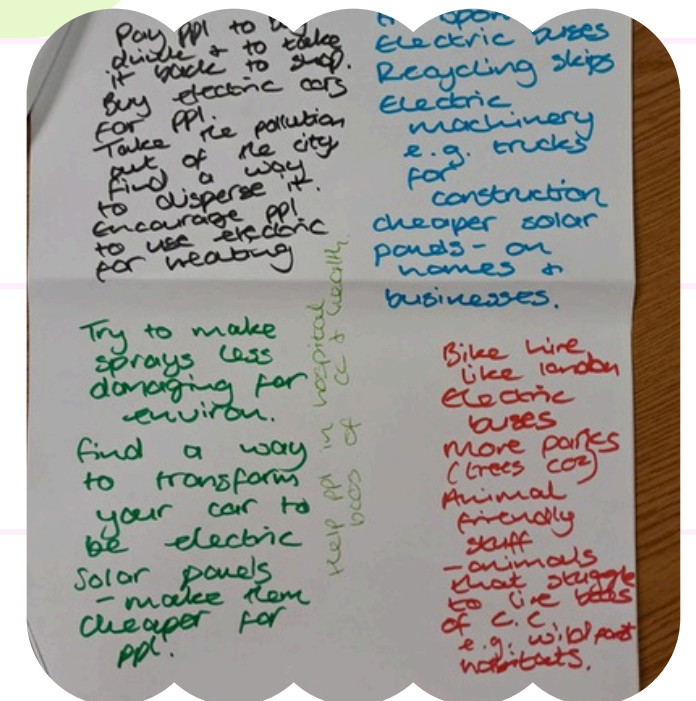 Pay ppl to buy
drink & to take
it back to shop.
Buy electric cars
for ppl.
Take the pollution
out of the city
find a way
to disperse it.
Encourage ppl
to use electric
for heating
Electric buses
Recycling skips
Electric
machinery
e.g. trucks
for
construction
cheaper solar
panels - on
homes &
businesses.
Try to make
sprays less
damaging for
environ.
find a way
to transform
your car to
be electric
Solar panels
- make them
cheaper for
ppl.
Help ppl in hospital
bcos of cc & health.
Bike hire
like london
Electric
buses
More parks
(trees co2)
Animal
friendly
stuff
- animals
that struggle
to live bcos
of C.C.
e.g.
habitats.